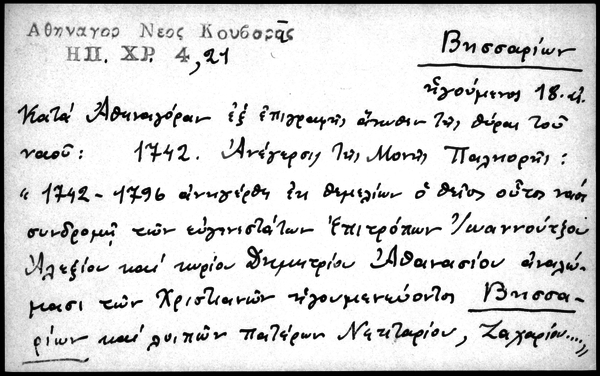 Αθηναγορ Νεος Κουβαρᾶς
ΗΠ. ΧΡ. 4, 21
Βησσαρίων
ἡγούμενος 18. αἰ.
Κατά Ἀθηναγόραν ἐξ ἐπιγραφῆς ἄνωθεν τῆς θύρας τοῦ
ναοῦ: 1742. Ἀνέγερσις τῆς Μονῆς Παλιορῆς:
" 1742 - 1796 ἀνηγέρθη ἐκ θεμελίων ὁ θεῖος οὗτος ναός
συνδρομῇ τῶν εὐγενεστάτων Ἐπιτρόπων Ἰωαννούτζου
Ἀλεξίου καί κυρίου Δημητρίου Ἀθανασίου ἀναλώ-
μασι τῶν Χριστιανῶν ἡγουμενεύοντος Βησσα-
ρίων καί λοιπῶν πατέρων Νεκταρίου, Ζαχαρίου....,,